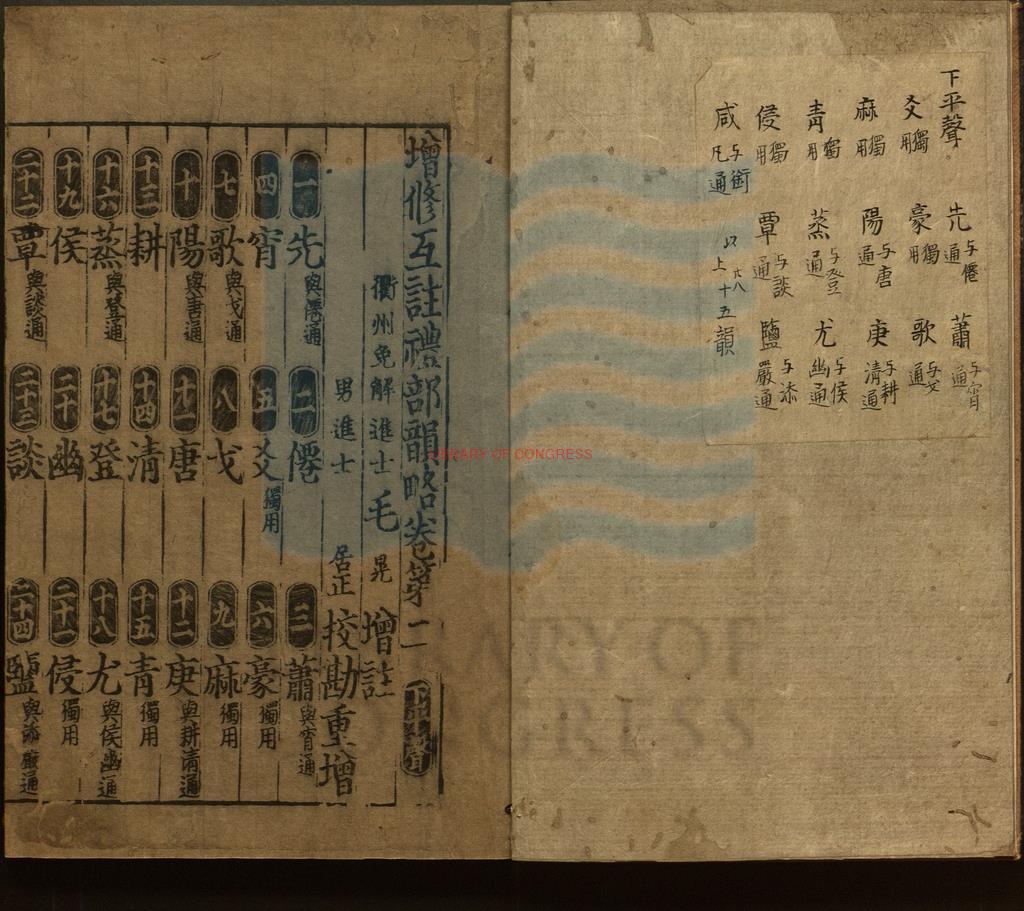 下平聲
先与僊通 蕭与宵通
爻獨用 豪獨用 歌与戈通
麻獨用 陽与唐通 庚与耕清通
青獨用 蒸与登通 尤与侯幽通
侵獨用 覃与談通 鹽与添嚴通
咸与銜凡通 以上六八十五韻
增修互註禮部韻略卷第二
衢州免解進士毛 晃 增註
男進士 居正 校勘重增
一先與僊通 二僊 三蕭與宵通
四宵 五爻獨用 六豪獨用
七歌與戈通 八戈 九麻獨用
十陽與唐通 十一唐 十二庚與耕清通
十三耕 十四清 十五青獨用
十六蒸與登通 十七登 十八尤與侯幽通
十九侯 二十幽 二十一侵獨用
二十二覃與談通 二十三談 二十四鹽與添嚴通
LIBRARY OF CONGRESS